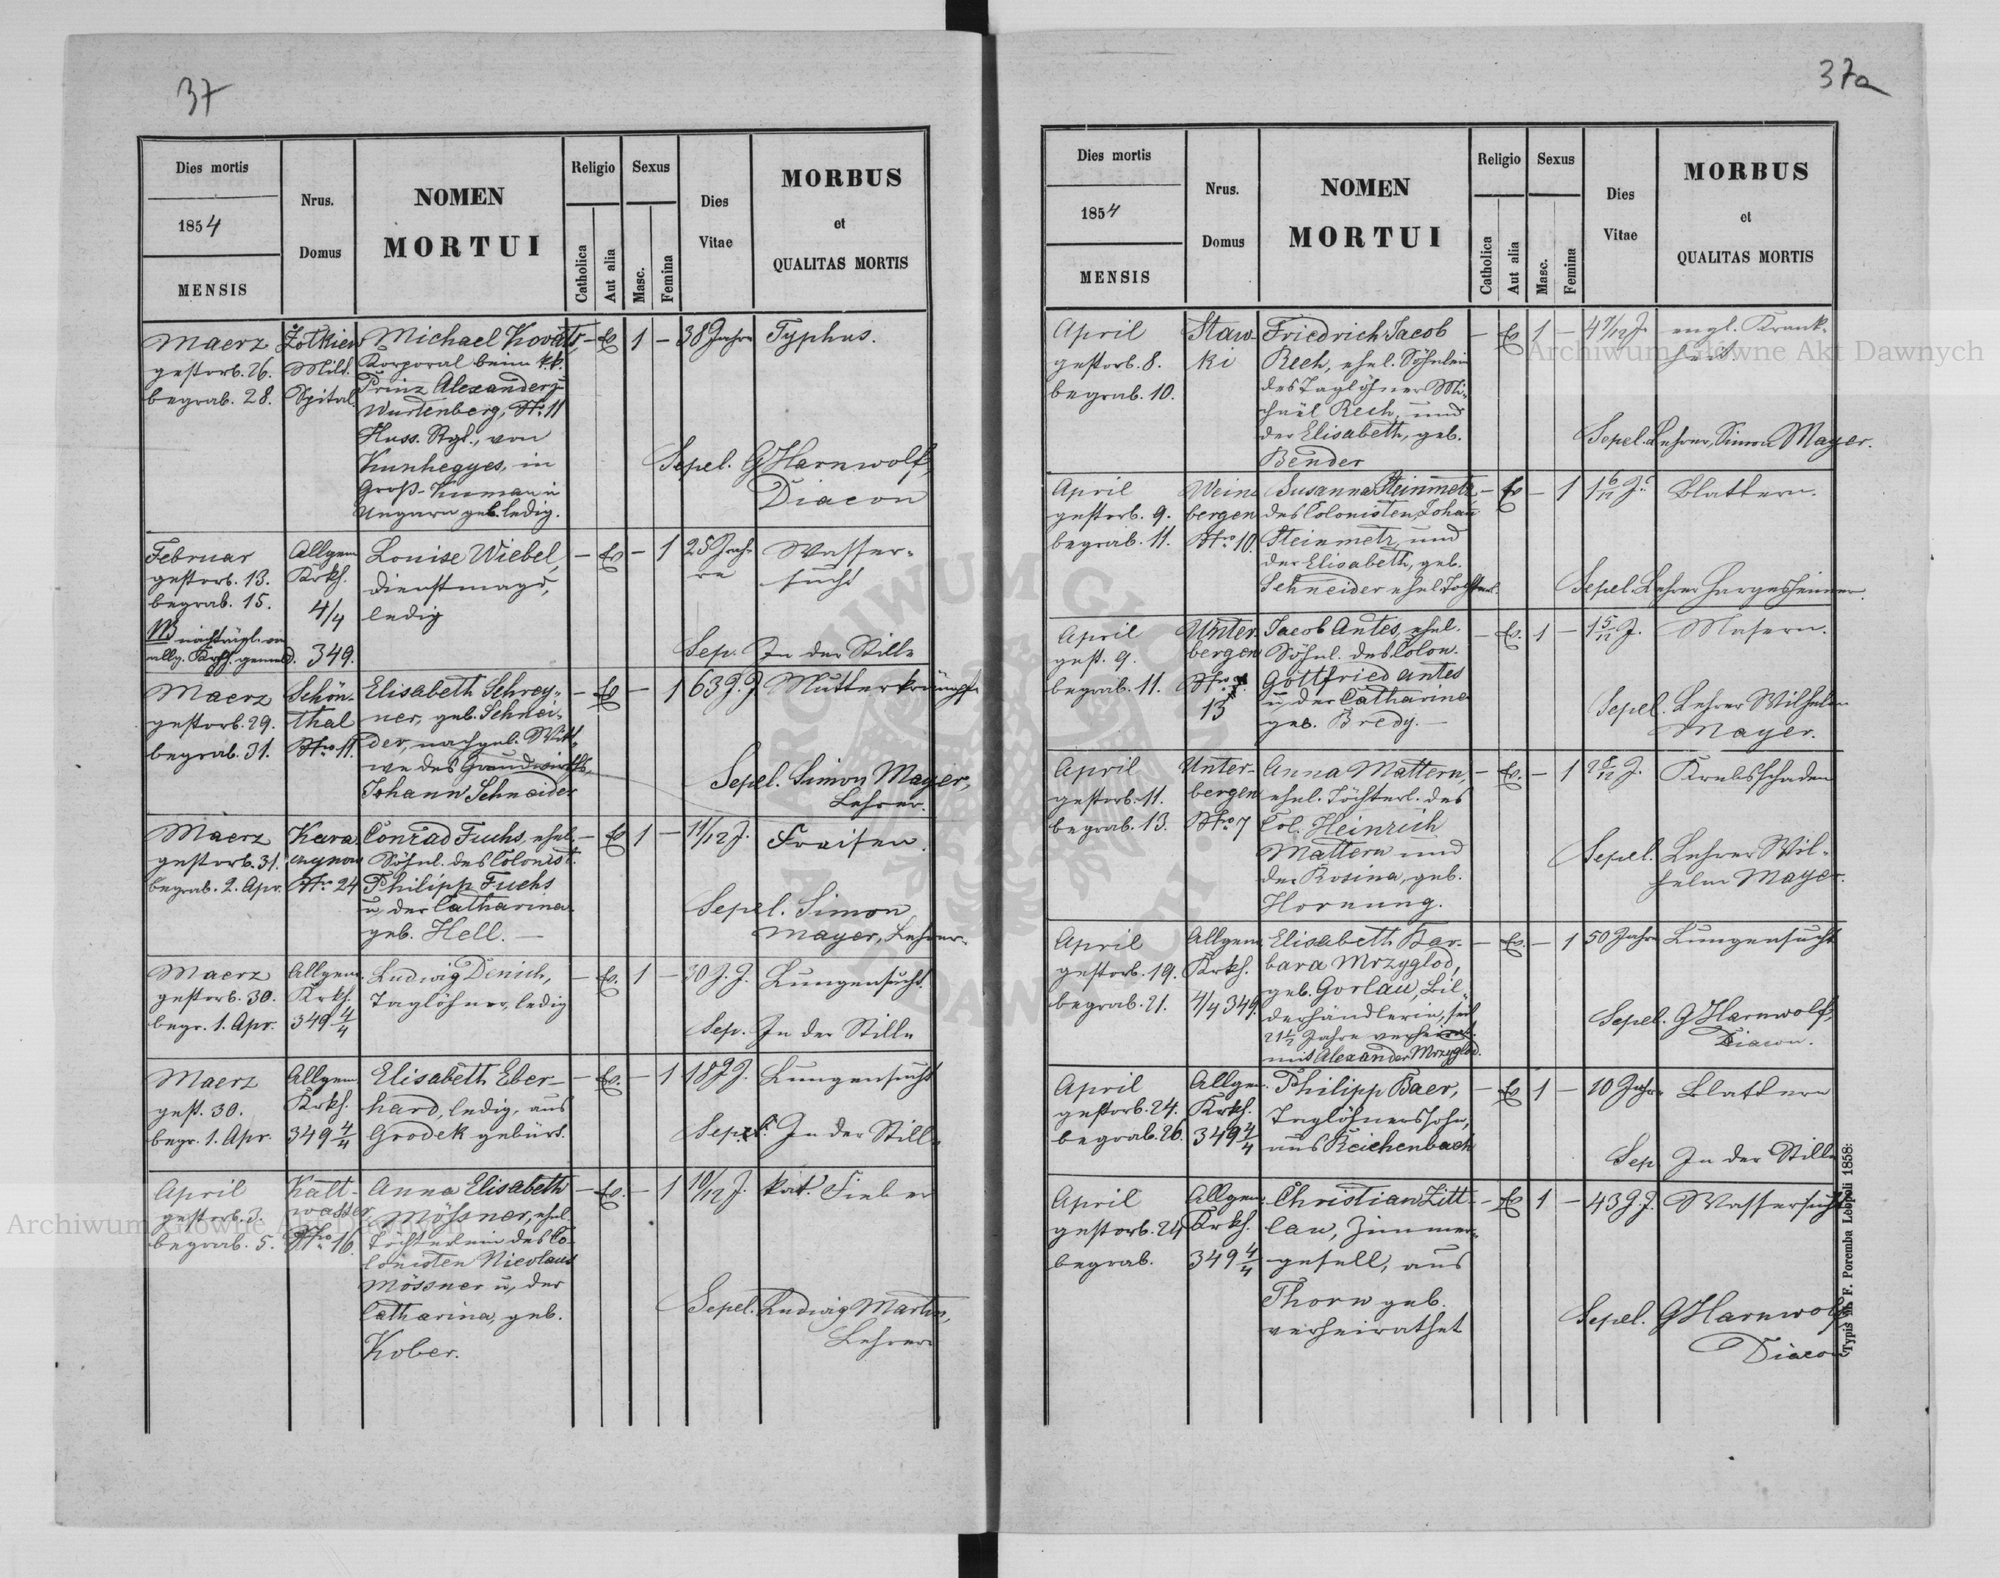 37
Dies mortis
1854
MENSIS
Nrus.
Domus
NOMEN
MORTUI
Religio
Catholica
Aut alia
Sexus
Masc.
Femina
Dies
Vitae
MORBUS
et
QUALITAS MORTIS
Maerz
gestorb. 26.
begrab. 28.
Żołkiew
Milit.
Spital.
Michael Kováts,
Korporal beim k.k.
Prinz Alexander zu
Würtenberg, Nro. 11
Huss. Rgt., von
Kunhegyes, in
Groß-Kumani in
Ungarn geb. ledig.
– Ev 1 –
38 Jahre
Typhus.
Sepel. G Harnwolf,
Diacon
Februar
gestorb. 13.
begrab. 15.
NB nachträgl. vom
allg. Krkh. gemeld.
Allgem.
Krkh.
4/4
349.
Louise Wiebel,
Dienstmagd,
ledig
– Ev – 1
25 Jah-
re
Wasser-
sucht
Sep. In der Stille
Maerz
gestorb. 29.
begrab. 31.
Schön-
thal
Nro 11.
Elisabeth Schrey-
ner, geb. Schnei-
der, nachgel. Witt-
we des Grundwirths
Johann Schneider
– Ev – 1
63 J. J.
Mutterkrämpfe
Sepel. Simon Mayer,
Lehrer.
Maerz
gestorb. 31.
begrab. 2. Apr.
Kara
czynow
Nro 24
Conrad Fuchs, ehel.
Söhnl. des Colonist.
Philipp Fuchs
u der Catharina
geb. Hell. —
– Ev 1 –
11/12 J.
Fraisen.
Sepel. Simon
Mayer, Lehrer.
Maerz
gestorb. 30.
begr. 1. Apr.
Allgem.
Krkh.
349 4/4
Ludwig Denich,
Taglöhner, ledig
– Ev. 1 –
30 J. J.
Lungensucht.
Sep. In der Stille
Maerz
gest. 30.
begr. 1. Apr.
Allgem.
Krkh.
349 4/4
Elisabeth Eber-
hard, ledig, aus
Grodek gebürt.
– Ev. – 1
18 J. J.
Lungensucht
Sepel. In der Stille
April
gestorb. 3.
begrab. 5.
Kalt-
wasser
Nro. 16.
Anna Elisabeth
Mössner, ehel.
Töchterlein des Co-
lonisten Nicolaus
Mössner u, der
Catharina, geb.
Kober.
– Ev. – 1
10/12 J.
kat. Fieber
Sepel. Ludwig Martin,
Lehrer
37a
Dies mortis
1854
MENSIS
Nrus.
Domus
NOMEN
MORTUI
Religio
Catholica
Aut alia
Sexus
Masc.
Femina
Dies
Vitae
MORBUS
et
QUALITAS MORTIS
April
gestorb. 8.
begrab. 10.
Staw-
ki
Friedrich Jacob
Rech, ehel. Söhnlein
des Taglöhner Mi-
chael Rech, und
der Elisabeth, geb.
Bender
– Ev 1 –
engl. Krank-
heit
Sepel. Lehrer, Simon Mayer.
April
gestorb. 9.
begrab. 11.
Wein
bergen
Nro 10.
Susanna Steinmetz
des Colonisten Johan̄
Steinmetz, und
der Elisabeth, geb.
Schneider ehel. Tochter.
– Ev – 1
1 6/12 J.
Blattern.
Sepel. Lehrer Hargesheimer.
April
gest. 9.
begrab. 11.
Unter-
bergen
Nro
13
Jacob Antes, ehel.
Söhnl. des Colon.
Gottfried Antes
u der Catharina
geb. Bredy. —
– Ev. 1 –
1 5/12 J.
Masern.
Sepel. Lehrer Wilhelm
Mayer.
April
gestorb. 11.
begrab. 13.
Unter-
bergen
Nro 7
Anna Mattern,
ehel. Töchterl. des
Col. Heinrich
Mattern und
der Rosina, geb.
Hornung.
– Ev. – 1
Krebsschaden
Sepel. Lehrer Wil-
helm Mayer.
April
gestorb. 19.
begrab. 21.
Allgem.
Krkh.
4/4 349.
Elisabeth Bar-
bara Mrzyglod,
geb. Gorlau, Bil-
derhändlerin, seit
21 1/2 Jahre verheirat.
mit Alexander Mrzyglod.
– Ev. – 1
50 Jahre
Lungensucht
Sepel. G Harnwolf,
Diacon.
April
gestorb. 24.
begrab. 26.
Allgem.
Krkh.
349 4/4
Philipp Baer,
Taglöhnerssohn,
aus Reichenbach
– Ev 1 –
10 Jahre
Blattern
Sep In der Stille
April
gestorb. 24
begrab.
Allgem.
Krkh.
349 4/4
Christian Zitt-
lau, Zimmer-
gesell, aus
Thorn geb.
verheirathet
– Ev 1 –
43 J. J.
Wassersucht
Sepel. G Harnwolf
Diacon
Typis M. F. Poremba Leopoli 1858:
Archiwum Główne Akt Dawnych
Archiwum Główne Akt Dawnych
ARCHIWUM GŁÓWNE AKT DAWNYCH